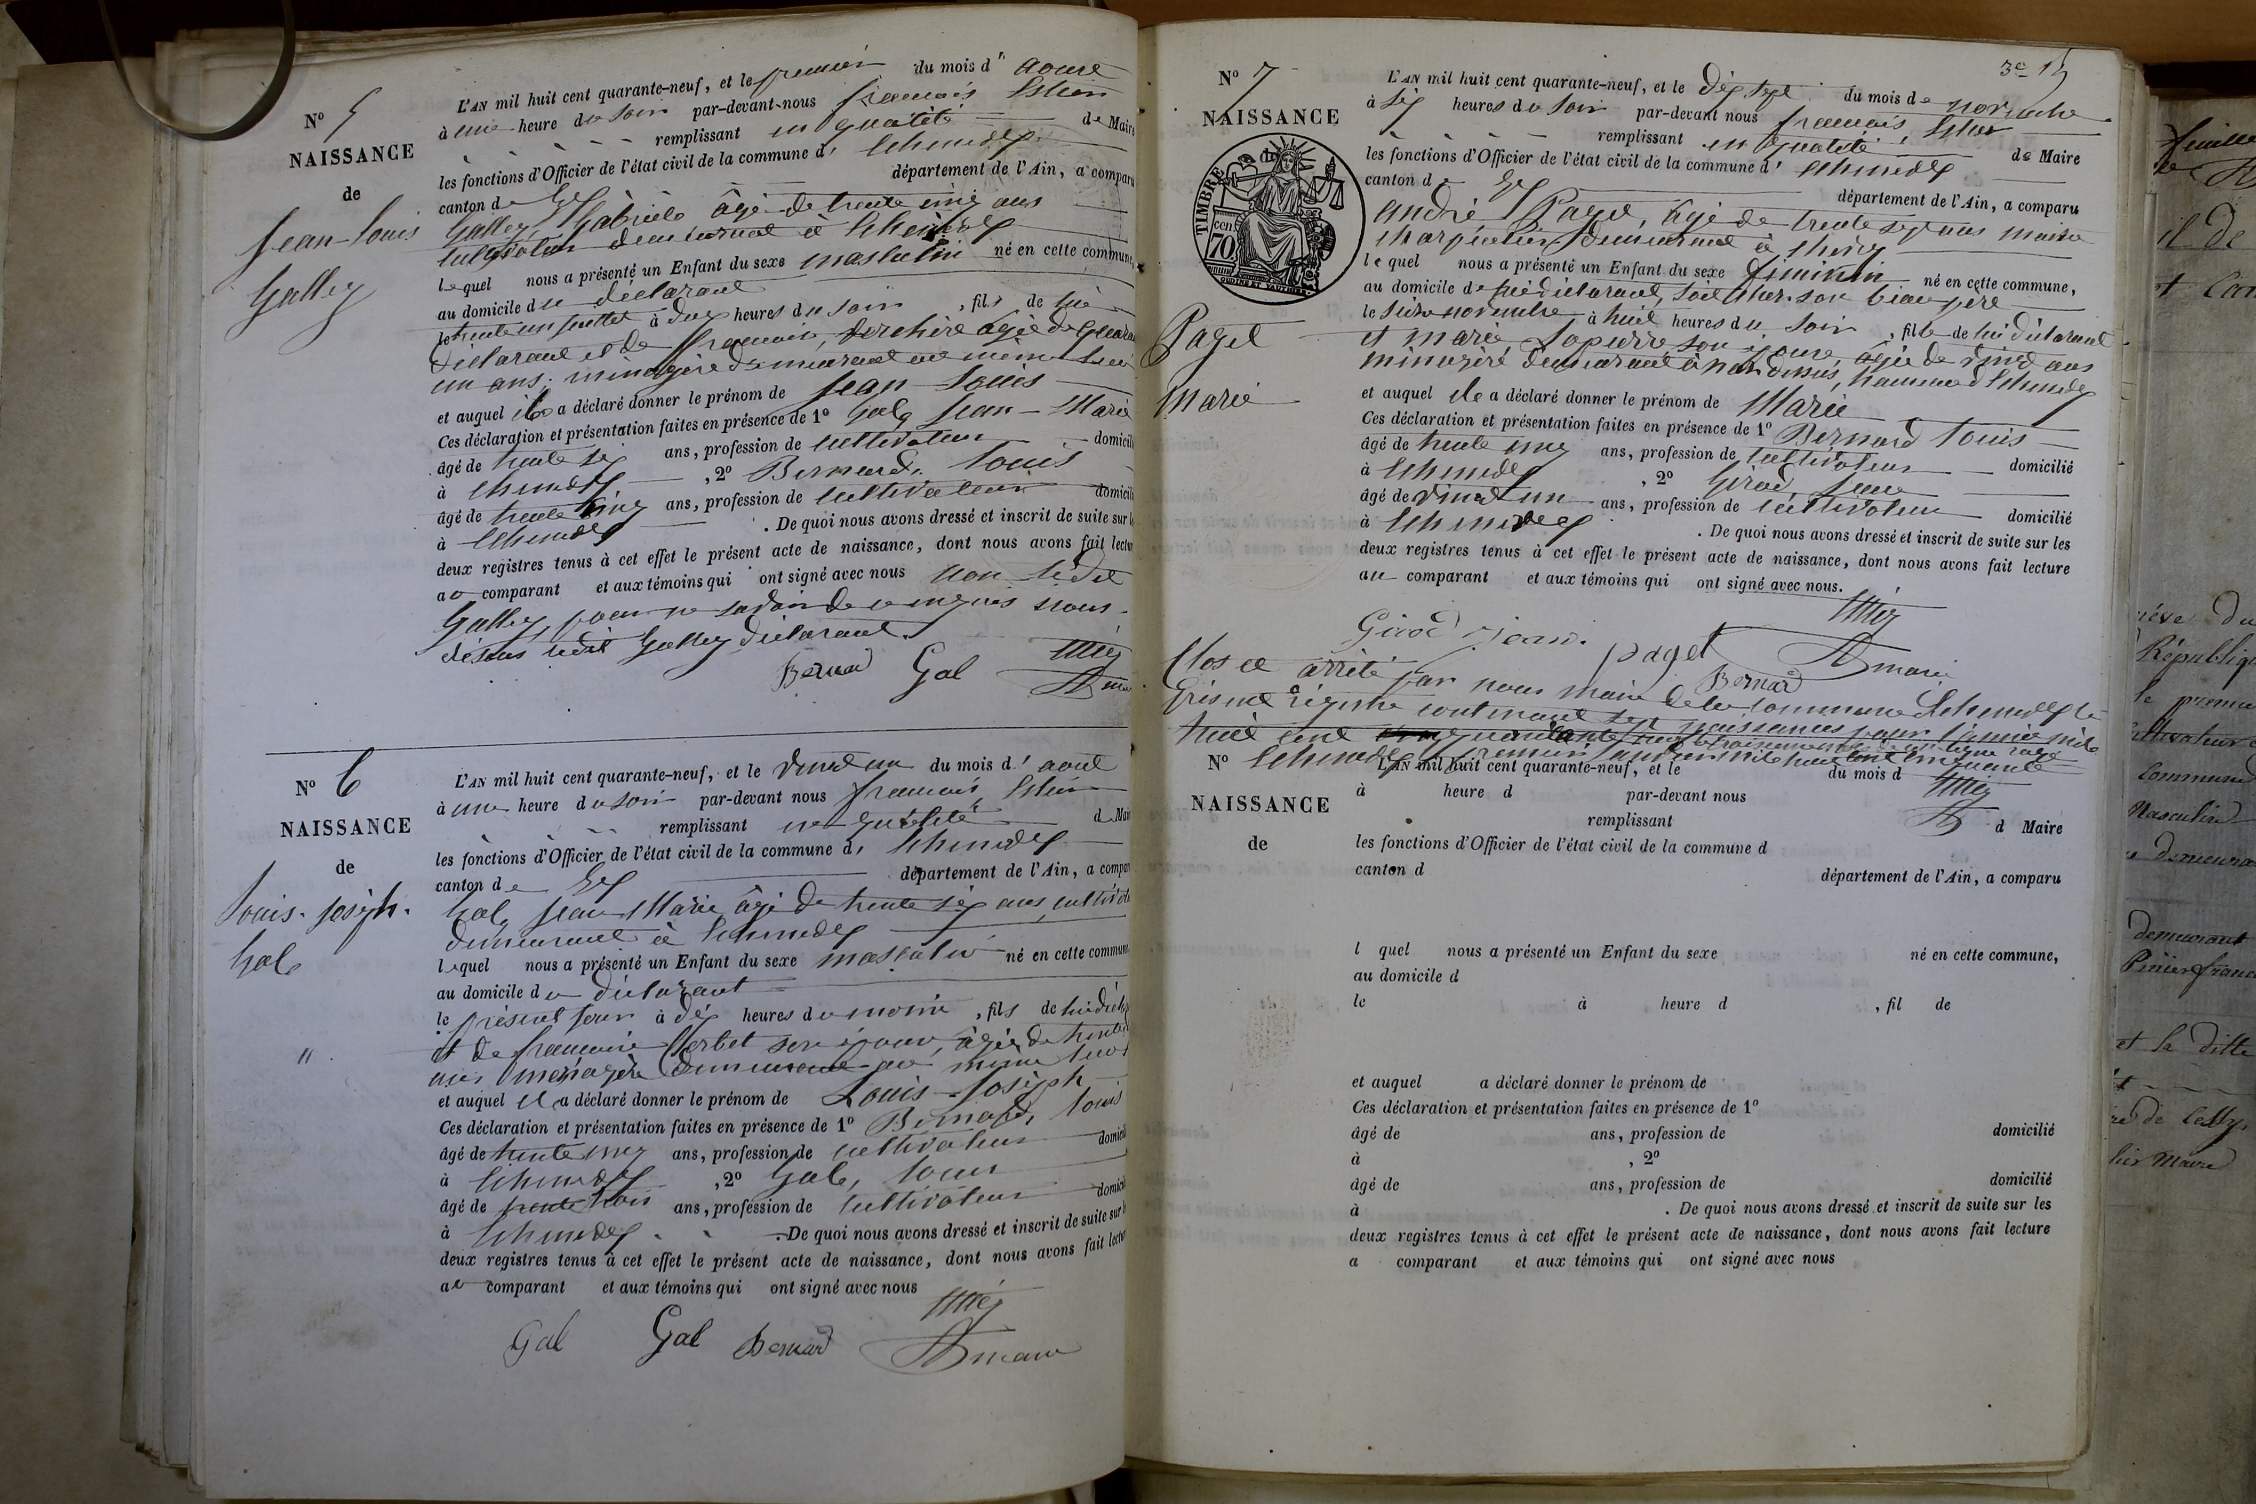 N° 5
NAISSANCE
de
Jean-Louis
Galley
L'AN mil huit cent quarante-neuf, et le premier du mois d' aout
à une heure du soir par-devant-nous françois
remplissant en qualité de Maire
les fonctions d'Officier de l'état civil de la commune d' Echenevex
canton de Gex département de l'Ain, a comparu
Galley, Gabriele âgé de trente cinq ans
cultivateur demeurant à Echenevex
lequel nous a présenté un Enfant du sexe masculin né en cette commune,
au domicile du déclarant
le trente un juillet à deux heures du soir, fils de lui
déclarant et de françoise, âgée de quarante
un ans, ménagère demeurant au même lieu
et auquel il a déclaré donner le prénom de Jean-Louis
Ces déclaration et présentation faites en présence de 1° Gal, Jean-Marie
âgé de trente six ans, profession de cultivateur domicilié
à Echenevex, 2° Bernard, Louis
âgé de trente cinq ans, profession de cultivateur domicilié
à Echenevex. De quoi nous avons dressé et inscrit de suite sur les
deux registres tenus à cet effet le présent acte de naissance, dont nous avons fait lecture
au comparant et aux témoins qui ont signé avec nous non le dit
Galley, pour ne savoir de ce enquis nous
dessus ledit Galley déclarant.
Bernard Gal
N° 6
NAISSANCE
de
Louis-Joseph.
Gal
L'AN mil huit cent quarante-neuf, et le vingt un du mois d' août
à une heure du soir par-devant nous françois
remplissant en qualité de Maire
les fonctions d'Officier de l'état civil de la commune d' Echenevex
canton de Gex département de l'Ain, a comparu
Gal, Jean Marie âgé de trente six ans, cultivateur
demeurant à Echenevex
lequel nous a présenté un Enfant du sexe masculin né en cette commune
au domicile du déclarant
le présent jour à dix heures du matin, fils de lui déclarant
et de françoise son épouse, âgée de trente
ans, ménagère demeurant au même lieu
et auquel il a déclaré donner le prénom de Louis-Joseph
Ces déclaration et présentation faites en présence de 1° Bernard, Louis
âgé de trente cinq ans, profession de cultivateur domicilié
à Echenevex, 2° Gal, Louis
âgé de trente trois ans, profession de cultivateur domicilié
à Echenevex. De quoi nous avons dressé et inscrit de suite sur les
deux registres tenus à cet effet le présent acte de naissance, dont nous avons fait lecture
au comparant et aux témoins qui ont signé avec nous
Gal Gal Bernard maire
N° 7
NAISSANCE
TIMBRE
70 cent
Paget
Marie
L'AN mil huit cent quarante-neuf, et le dix sept du mois de novembre
à six heures du soir par-devant nous françois
remplissant en qualité de Maire
les fonctions d'Officier de l'état civil de la commune d' Echenevex
canton de Gex département de l'Ain, a comparu
andré Paget, âgé de trente sept ans maitre
charpentier demeurant à
lequel nous a présenté un Enfant du sexe féminin né en cette commune,
au domicile de lui déclarant, soit chez son beau père
le seize novembre à huit heures du soir, fille de lui déclarant
et marie Lapierre son épouse, âgée de vingt ans
ménagère demeurant à Echenevex
et auquel il a déclaré donner le prénom de Marie
Ces déclaration et présentation faites en présence de 1° Bernard Louis
âgé de trente cinq ans, profession de cultivateur domicilié
à Echenevex, 2° Girod Jean
âgé de vingt un ans, profession de cultivateur domicilié
à Echenevex. De quoi nous avons dressé et inscrit de suite sur les
deux registres tenus à cet effet le présent acte de naissance, dont nous avons fait lecture
au comparant et aux témoins qui ont signé avec nous.
Girod Jean. paget Bernard maire
Clos et arrêté par nous maire de la commune Echenevex le
présent régistre contenant sept naissances pour l'année mil
huit cent quarante neuf
Echenevex premier janvier mil huit cent cinquante
N°
NAISSANCE
de
L'AN mil huit cent quarante-neuf, et le du mois d
à heure d par-devant nous
remplissant d Maire
les fonctions d'Officier de l'état civil de la commune d
canton d département de l'Ain, a comparu
l quel nous a présenté un Enfant du sexe né en cette commune,
au domicile d
le à heure d , fil de
et auquel a déclaré donner le prénom de
Ces déclaration et présentation faites en présence de 1°
âgé de ans, profession de domicilié
à , 2°
âgé de ans, profession de domicilié
à . De quoi nous avons dressé et inscrit de suite sur les
deux registres tenus à cet effet le présent acte de naissance, dont nous avons fait lecture
a comparant et aux témoins qui ont signé avec nous